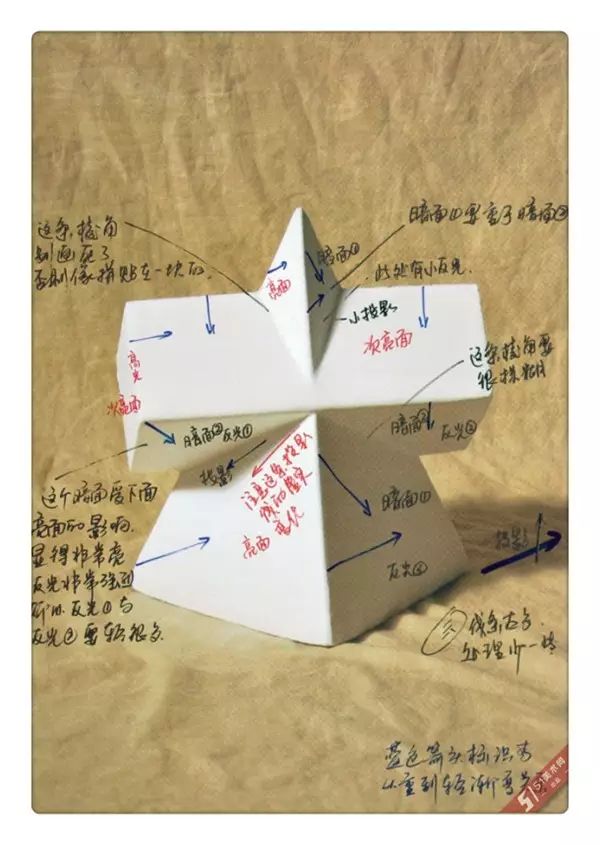 这条棱角
别画死了
否则像拼贴在一块的.
暗面①要重于暗面②
暗面①
此处有小反光.
亮面
小投影
高光
次亮面
次亮面
这条棱角要
很模糊
暗面②反光①
暗面②
反光②
投影
注意这条投影
线的虚实
变化
亮面
暗面①
反光②
投影
这个暗面受下面
亮面的影响.
显得非常亮
反光非常强烈
所以反光①与
反光②要轻很多
处理小一些
蓝色箭头标识为
从重到轻渐变关系
51美术网